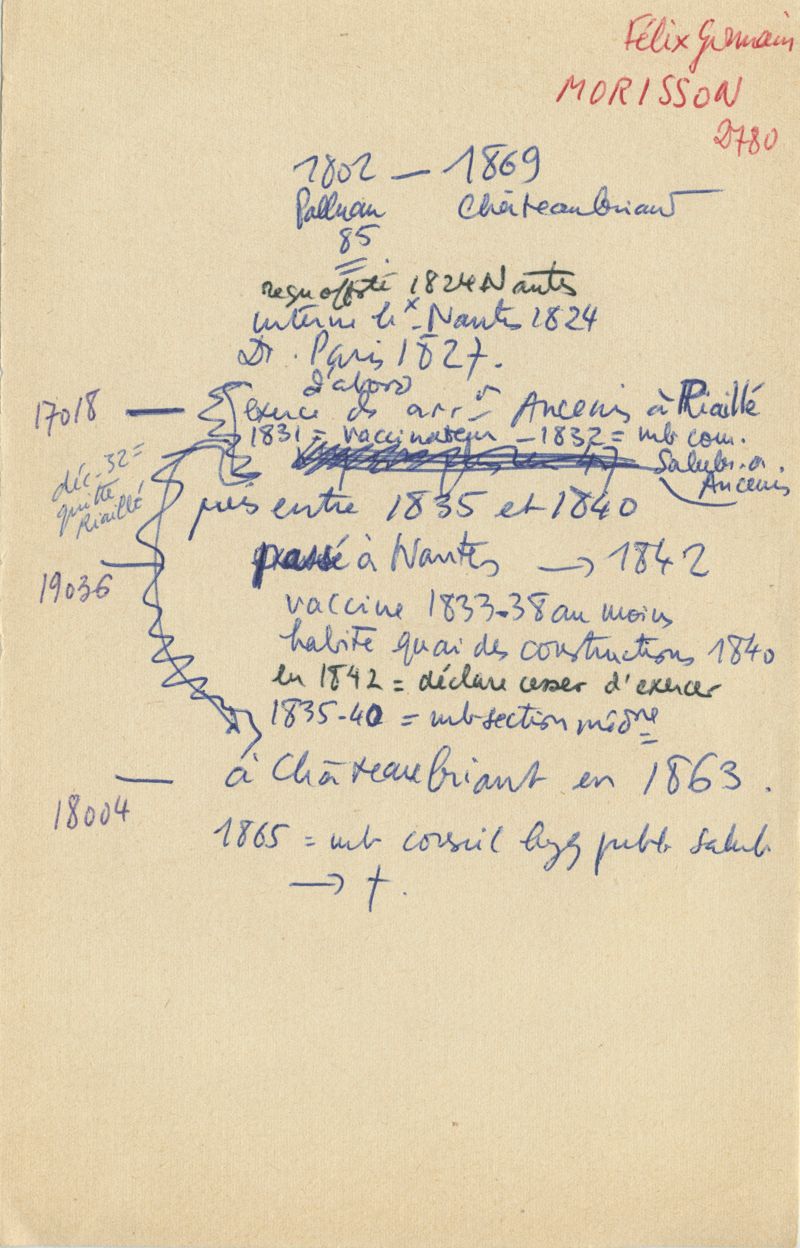 Félix Germain
MORISSON
2780
1802 — 1869
Palluau Châteaubriant
85
1824 Nantes
interne hx - Nantes 1824
Dr. Paris 1827.
d'abord
17018 — exerce ds arrt Ancenis à Riaillé
1831 = vaccinateur - 1832 = mb com.
Salubr.
Ancenis
déc. 32 =
quitte
Riaillé
puis entre 1835 et 1840
19036 — passé à Nantes → 1842
vaccine 1833-38 au moins
habite quai des constructions 1840
en 1842 = déclare cesser d'exercer
1835-40 = mb section médne
18004 — à Châteaubriant en 1863.
1865 = mb conseil hyg publ salub
→ †.